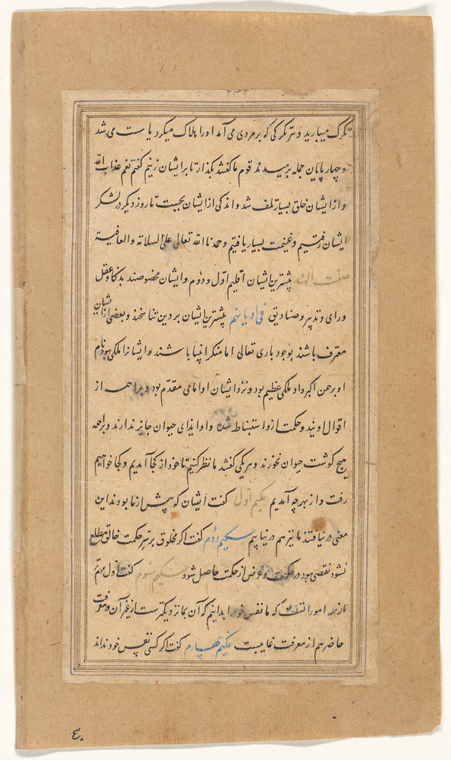 تکرک میبارید و هر تکرکی که بر مردی می آمد او را هلاک میکرد یا ست می شد
و چهار پایان جمله برمیدند قوم ما کفتند بکذار تا بر ایشان زنیم کفتم نعم عذاب الله
و از ایشان خلق بسیار تلف شد و اندکی از ایشان بجست تا روز دیکر در لشکر
ایشان رفتیم و غنیمت بسیار یافتیم و حمدنا الله تعالی علی السلامة و العافیة
صفت الهند بیشترین ایشان اقلیم اول و دوم و ایشان مخصوصند بذکا و عقل
و رای و تدبیر و صنادیق فی ادیانهم بیشترین ایشان بر دین تناسخند و بعضی از ایشان
معترف باشند بوجود باری تعالی اما منکر انبیا باشند و ایشانرا ملکی بود نام
او برهمن اکبر و او ملکی عظیم بود و نزد ایشان او امامی مقدم بود و براهمه از
اقوال اویند و حکمت از او استنباط شده و او ایذای حیوان جایز ندارند و براهمه
هیچ کوشت حیوان نخورند و هر یکی کفتند ما نظر کنیم تا خود از کجا آمدیم و کجا خواهیم
رفت و از بهر چه آمدیم حکیم اول کفت ایشان که پیش از ما بودند این
معنی در نیافتند ما نیز هم در نیابیم حکیم دوم کفت اکر مخلوق بر سر حکمت خالق مطلع
شود نقصی بود در حکمت و غرض از حکمت حاصل شود حکیم سوم کفت اول مهم تر
از همه امور آنست که ما نفس خود را بدانیم که آن بما نزدیکترست از غیر آن و معرفت
حاضر هم از معرفت غایبست حکیم چهارم کفت اکر کسی نفس خود نداند